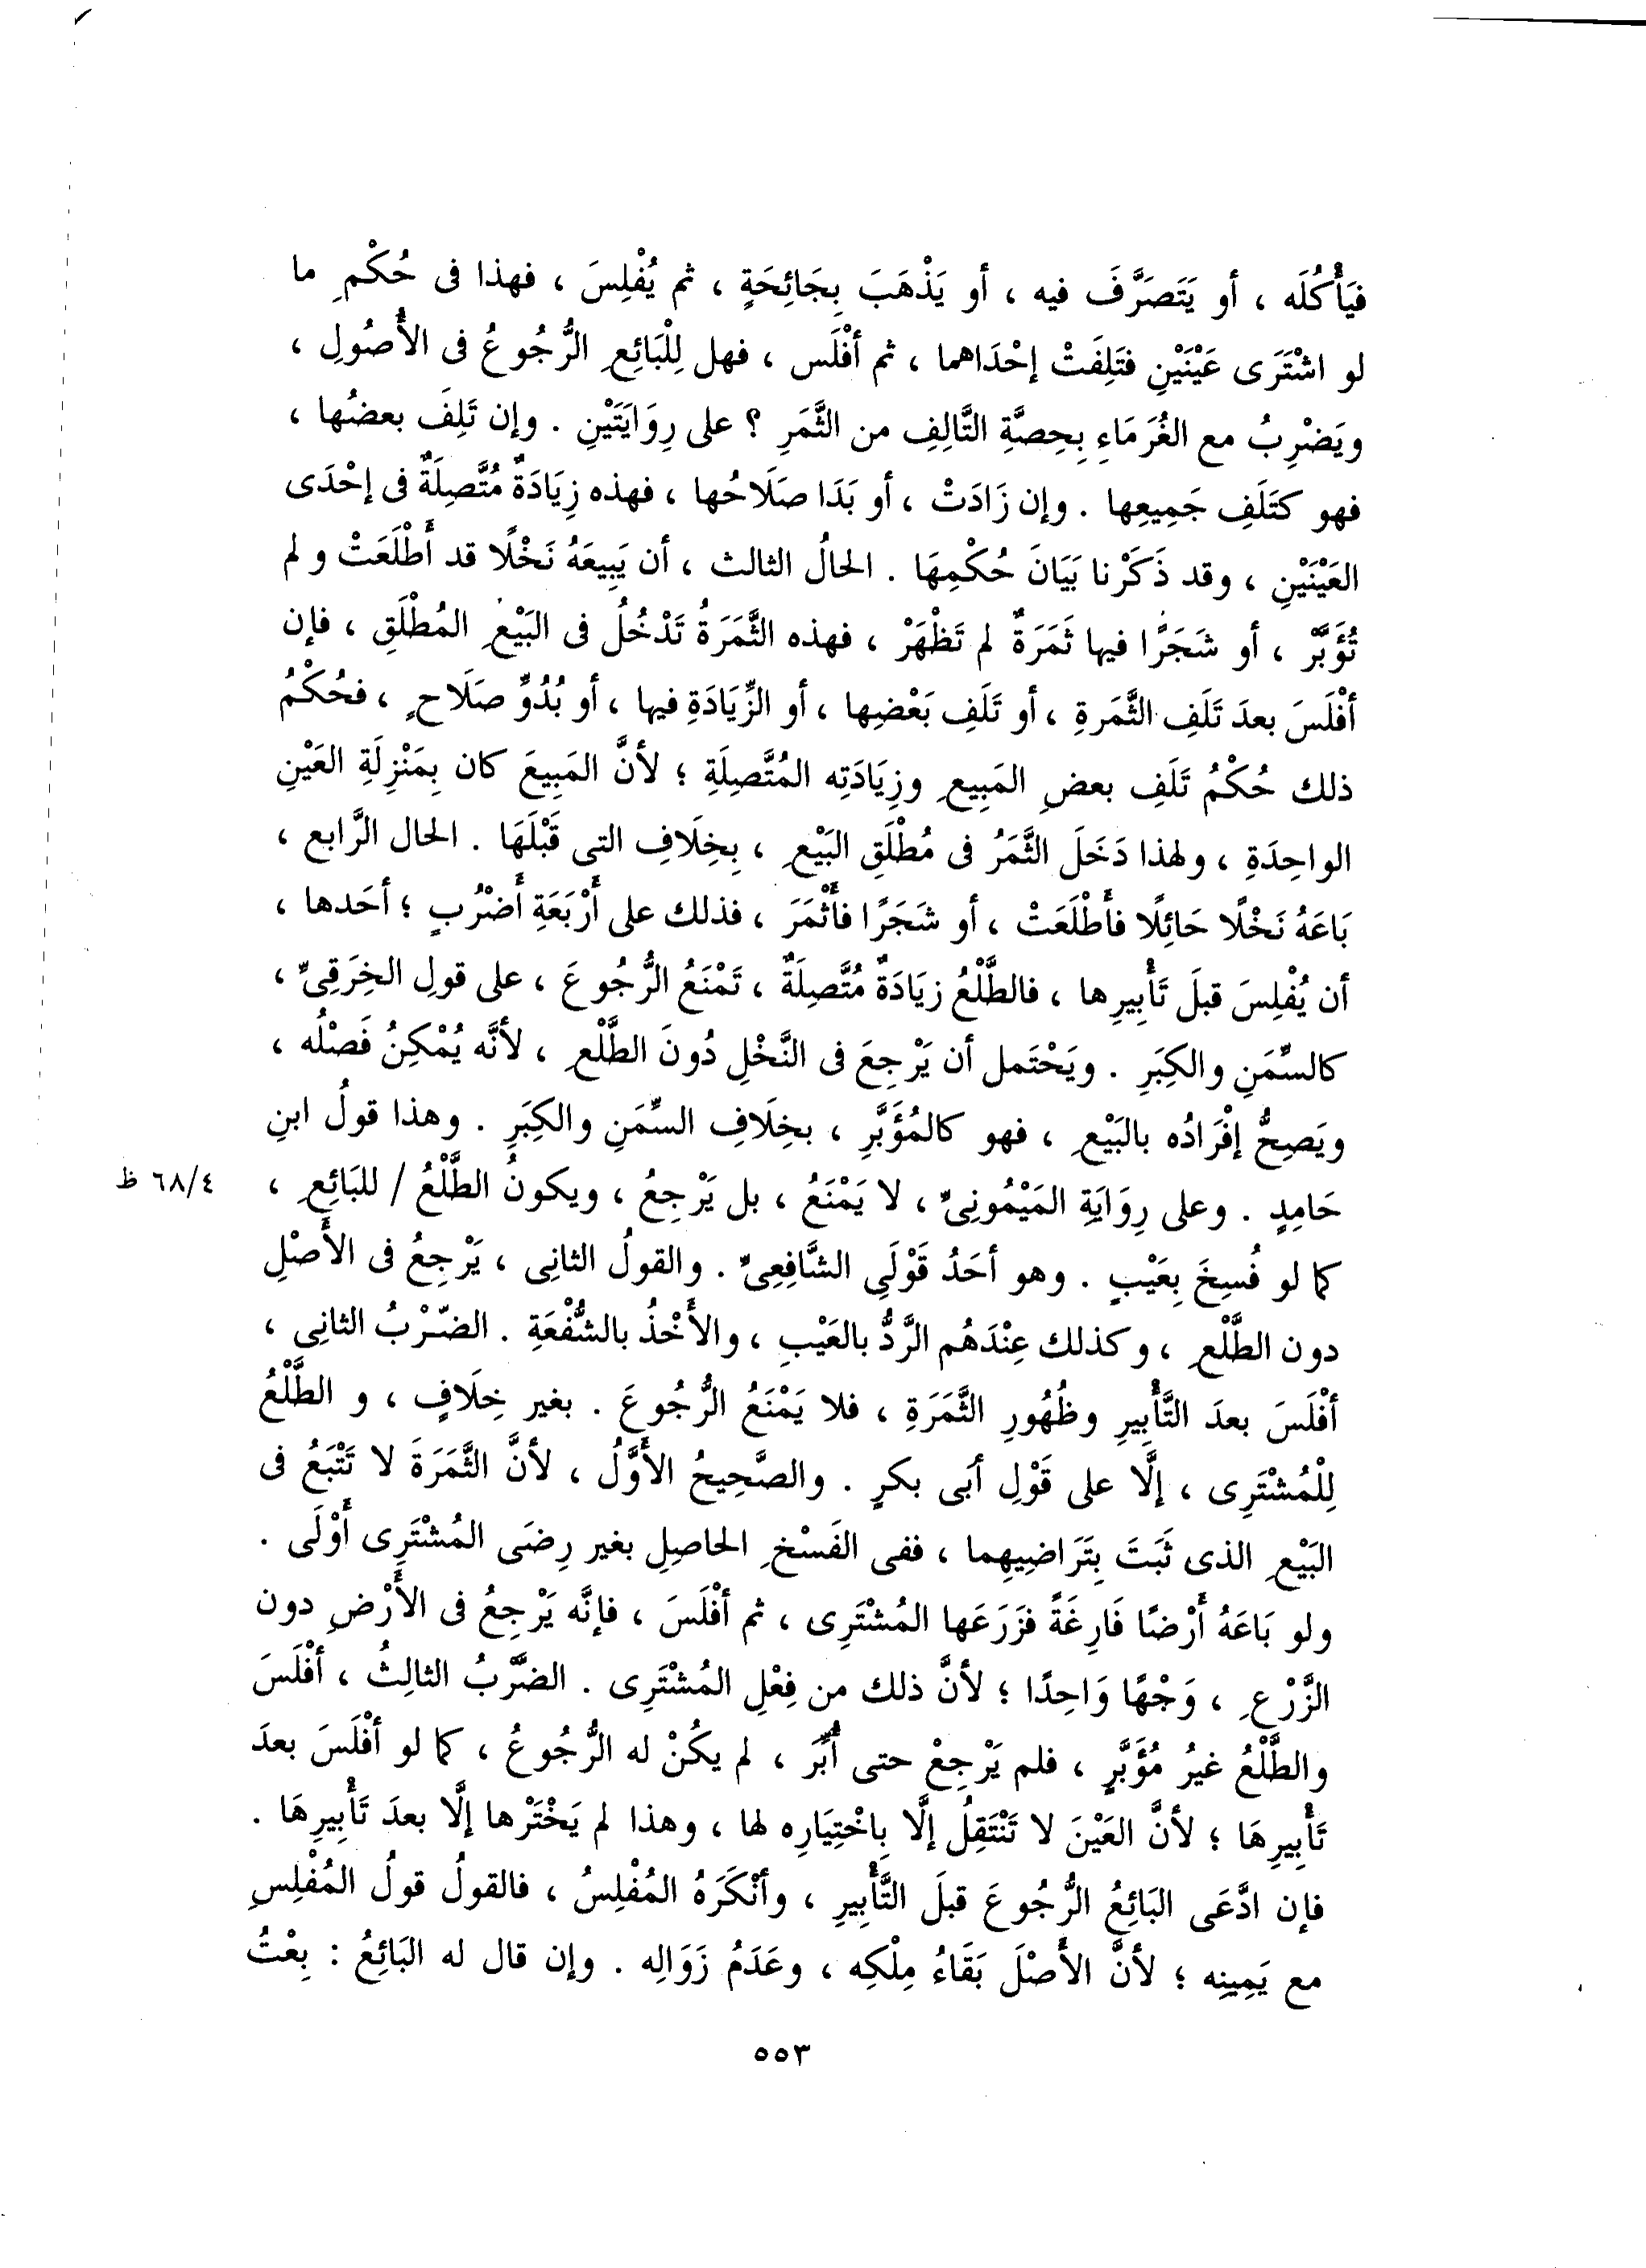 فيَأْكُلَه ، أو يَتَصَرَّفَ فيه ، أو يَذْهَبَ بِجَائِحَةٍ ، ثم يُفْلِسَ ، فهذا فى حُكْمِ ما
لو اشْتَرَى عَيْنَيْنِ فتَلِفَتْ إحْدَاهما ، ثم أفْلَس ، فهل لِلْبَائِعِ الرُّجُوعُ فى الأُصُولِ ،
ويَضْرِبُ مع الغُرَمَاءِ بِحِصَّةِ التَّالِفِ من الثَّمَرِ ؟ على رِوَايَتَيْنِ . وإن تَلِفَ بعضُها ،
فهو كتَلَفِ جَمِيعِها . وإن زَادَتْ ، أو بَدَا صَلَاحُها ، فهذه زِيَادَةٌ مُتَّصِلَةٌ فى إحْدَى
العَيْنَيْنِ ، وقد ذَكَرْنا بَيَانَ حُكْمِهَا . الحالُ الثالث ، أن يَبِيعَهُ نَخْلًا قد أَطْلَعَتْ و لم
تُؤَبَّرْ ، أو شَجَرًا فيها ثَمَرَةٌ لم تَظْهَرْ ، فهذه الثَّمَرَةُ تَدْخُلُ فى البَيْعِ المُطْلَقِ ، فإن
أفْلَسَ بعدَ تَلَفِ الثَّمَرةِ ، أو تَلَفِ بَعْضِها ، أو الزِّيَادَةِ فيها ، أو بُدُوِّ صَلَاحٍ ، فحُكْمُ
ذلك حُكْمُ تَلَفِ بعضِ المَبِيعِ وزِيَادَتِه المُتَّصِلَةِ ؛ لأنَّ المَبِيعَ كان بِمَنْزِلَةِ العَيْنِ
الواحِدَةِ ، ولهذا دَخَلَ الثَّمَرُ فى مُطْلَقِ البَيْعِ ، بِخِلَافِ التى قَبْلَهَا . الحال الرَّابع ،
بَاعَهُ نَخْلًا حَائِلًا فأَطْلَعَتْ ، أو شَجَرًا فأَثْمَرَ ، فذلك على أَرْبَعَةِ أَضْرُبٍ ؛ أحَدها ،
أن يُفْلِسَ قبلَ تَأْبِيرِها ، فالطَّلْعُ زيَادَةٌ مُتَّصِلَةٌ ، تَمْنَعُ الرُّجُوعَ ، على قولِ الخِرَقِىِّ ،
كالسِّمَنِ والكِبَرِ . ويَحْتَمل أن يَرْجِعَ فى النَّخْلِ دُونَ الطَّلْعِ ، لأنَّه يُمْكِنُ فَصْلُه ،
ويَصِحُّ إفْرَادُه بالبَيْعِ ، فهو كالمُؤَبَّرِ ، بخِلَافِ السِّمَنِ والكِبَرِ . وهذا قولُ ابنِ
حَامِدٍ . وعلى رِوَايَةِ المَيْمُونِىِّ ، لا يَمْنَعُ ، بل يَرْجِعُ ، ويكونُ الطَّلْعُ / للبَائِعِ ،
٦٨/٤ ظ
كما لو فُسِخَ بِعَيْبٍ . وهو أحَدُ قَوْلَىِ الشَّافِعِىِّ . والقولُ الثانِى ، يَرْجِعُ فى الأَصْلِ
دون الطَّلْعِ ، وكذلك عِنْدَهُم الرَّدُّ بالعَيْبِ ، والأَخْذُ بالشُّفْعَةِ . الضّرْبُ الثانِى ،
أفْلَسَ بعدَ التَّأْبِيرِ وظُهُورِ الثَّمَرَةِ ، فلا يَمْنَعُ الرُّجُوعَ . بغير خِلَافٍ ، و الطَّلْعُ
لِلْمُشْتَرِى ، إلَّا على قَوْلِ أبَى بكرٍ . والصَّحِيحُ الأَوَّلُ ، لأنَّ الثَّمَرَةَ لا تَتْبَعُ فى
البَيْعِ الذى ثَبَتَ بِتَرَاضِيهِما ، ففى الفَسْخِ الحاصِلِ بغير رِضَى المُشْتَرِى أَوْلَى .
ولو بَاعَهُ أَرْضًا فَارِغَةً فزَرَعَها المُشْتَرِى ، ثم أفْلَسَ ، فإنَّه يَرْجِعُ فى الأَرْضِ دون
الزَّرْعِ ، وَجْهًا وَاحِدًا ؛ لأنَّ ذلك من فِعْلِ المُشْتَرِى . الضَّرْبُ الثالِثُ ، أفْلَسَ
والطَّلْعُ غيرُ مُؤَبَّرٍ ، فلم يَرْجِعْ حتى أُبِّرَ ، لم يكُنْ له الرُّجُوعُ ، كما لو أفْلَسَ بعدَ
تَأْبِيرِهَا ؛ لأنَّ العَيْنَ لا تَنْتَقِلُ إلَّا بِاخْتِيَارِه لها ، وهذا لم يَخْتَرْها إلَّا بعدَ تَأْبِيرِهَا .
فإن ادَّعَى البَائِعُ الرُّجُوعَ قبلَ التَّأْبِيرِ ، وأنْكَرَهُ المُفْلِسُ ، فالقولُ قولُ المُفْلِسِ
مع يَمِينِه ؛ لأنَّ الأَصْلَ بَقَاءُ مِلْكِه ، وعَدَمُ زَوَالِه . وإن قال له البَائِعُ : بِعْتُ
٥٥٣